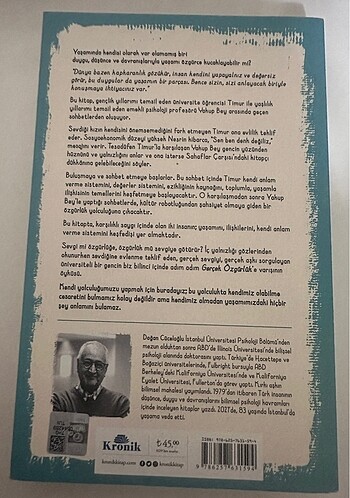 Yaşamında kendisi olarak var olamamış biri
duygu, düşünce ve davranışlarıyla yaşamı özgürce kucaklayabilir mi?
"Dünya bazen kapkaranlık gözükür, insan kendini yapayalnız ve değersiz
görür, bu duygular da yaşamın bir parçası. Bence sizin, sizi anlayacak biriyle
konuşmaya ihtiyacınız var."
Bu kitap, gençlik yıllarımı temsil eden üniversite öğrencisi Timur ile yaşlılık
yıllarımı temsil eden emekli psikoloji profesörü Yakup Bey arasında geçen
sohbetlerden oluşuyor.
Sevdiği kızın kendisini önemsemediğini fark etmeyen Timur ona evlilik teklif
eder. Sosyoekonomik düzeyi yüksek Nesrin kibarca, "Sen ben denk değiliz,"
mesajını verir. Tesadüfen Timur'la karşılaşan Yakup Bey gencin yüzünden
hüznünü ve yalnızlığını anlar ve ona isterse Sahaflar Çarşısı'ndaki kitapçı
dükkânına gelebileceğini söyler.
Buluşmaya ve sohbet etmeye başlarlar. Bu sohbet içinde Timur kendi anlam
verme sistemini, değerler sistemini, ezikliğinin kaynağını, toplumla, yaşamla
ilişkisinin temellerini keşfetmeye başlayacaktır. O karşılaşmadan sonra Yakup
Bey'le yaptığı sohbetlerde, kültür robotluğundan şahsiyet olmaya giden bir
özgürlük yolculuğuna çıkacaktır.
Bu kitapta, karşılıklı saygı içinde olan iki insanız; yaşamını, ilişkilerini, kendi anlam
verme sistemini keşfedişi yer almaktadır.
Sevgi mi özgürlüğe, özgürlük mü sevgiye götürür? İç yalnızlığı gözlerinden
okunurken sevdiğine evlenme teklif eden, gerçek sevgiyi, gerçek aşkı sorgulayan
üniversiteli bir gencin biz bilinci içinde adım adım Gerçek Özgürlük'e varışının
öyküsü.
Kendi yolculuğumuzu yapmak için buradayız; bu yolculukta kendimiz olabilme
cesaretini bulmamız kolay değildir ama kendimiz olmadan yaşamımızdaki hiçbir
şey anlamını bulamaz.
Doğan Cüceloğlu İstanbul Üniversitesi Psikoloji Bölümü'nden
mezun olduktan sonra ABD'de Illinois Üniversitesi'nde bilişsel
psikoloji alanında doktorasını yaptı. Türkiye'de Hacettepe ve
Boğaziçi üniversitelerinde, Fulbright bursuyla ABD
Berkeley'deki Kaliforniya Üniversitesi'nde ve Kaliforniya
Eyalet Üniversitesi, Fullerton'da görev yaptı. Kırkı aşkın
bilimsel makalesi yayımlandı. 1979'dan itibaren Türk insanının
düşünce, duygu ve davranışlarını bilimsel psikoloji kavramları
içinde inceleyen kitaplar yazdı. 2021'de, 83 yaşında İstanbul'da
yaşama veda etti.
Kronik
kronikkitap.com
kronikkitap
₺ 45,00
9 786257 631594